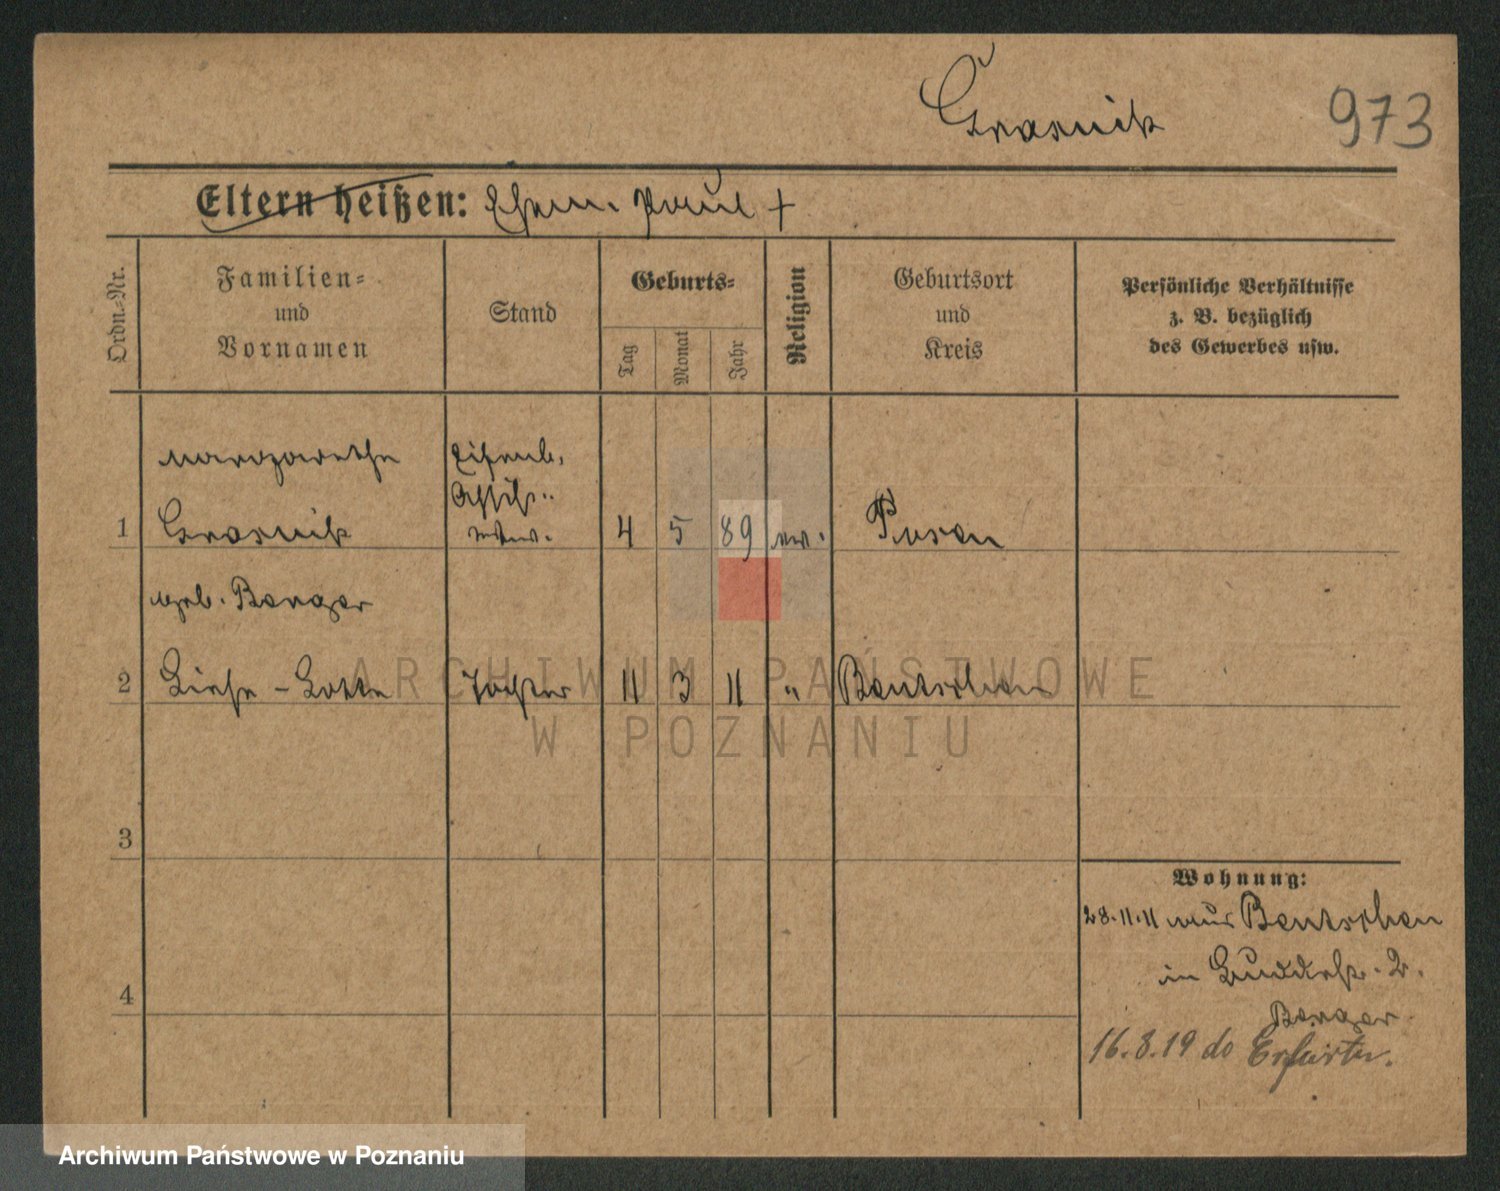 Grasnik
973
Eltern heißen: Ehem. Paul +
Ordn.-Nr.
Familien-
und
Vornamen
Stand
Geburts-
Tag
Monat
Jahr
Religion
Geburtsort
und
Kreis
Persönliche Verhältnisse
z. B. bezüglich
des Gewerbes usw.
Margarethe
Eisenb.
Assist.
1 Grasnik 4 5 89 ev. Posen
geb. Berger
2 Liese-Lotte Tochter 11 3 11 " Bentschen
ARCHIWUM PAŃSTWOWE
W POZNANIU
3
4
Wohnung:
28.11.11 aus Bentschen
in 2.
Berger
16.8.19 do Erfurtu.
Archiwum Państwowe w Poznaniu